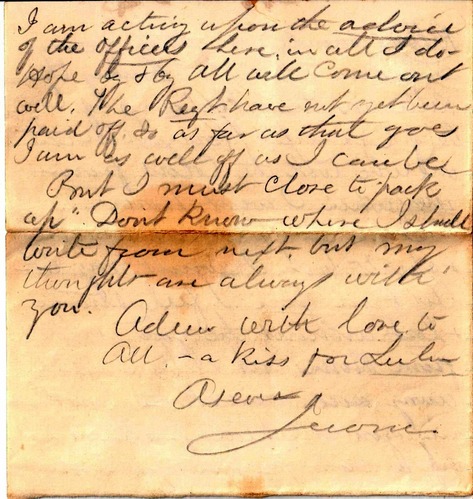 I am acting upon the advice
of the officers here, in all I do-
Hope by & by All will Come out
well. The Regt have not yet been
paid off. So as far as that goes
I am as well off as I can be
But I must Close to pack
up". Don't Know where I shall
write from next. but my
thoughts are always with
you.
Adieu with love to
All. - a Kiss for Lulu
As ever
Jerome